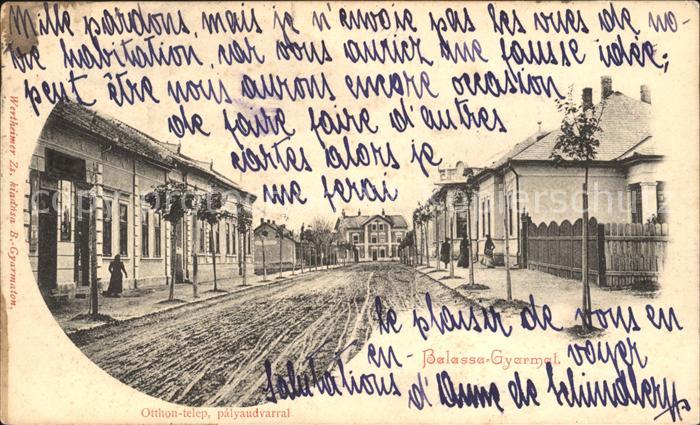 Mille pardons, mais je n'envoie pas les vues de no-
tre habitation, car vous auriez une fausse idée;
peut être nous aurons encore occasion
de faire faire d'autres
cartes alors je
me ferai
le plaisir de vous en
en- voyer
Salutations d'Anne de Schindler
Balassa-Gyarmat.
Otthon-telep, pályaudvarral
Wertheimer Zs. kiadása B.-Gyarmaton.
Copyright
Bilderschutz